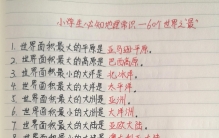 小学生必知地理常识—60个世界之"最"
1. 世界面积最大的平原是亚马逊平原。
2. 世界面积最大的高原是巴西高原。
3. 世界面积最小的大洋是北冰洋。
4. 世界面积最大的大洋是太平洋。
5. 世界面积最大的大洲是亚洲。
6. 世界面积最小的大洲是大洋洲。
7. 世界面积最大的大陆是亚欧大陆。